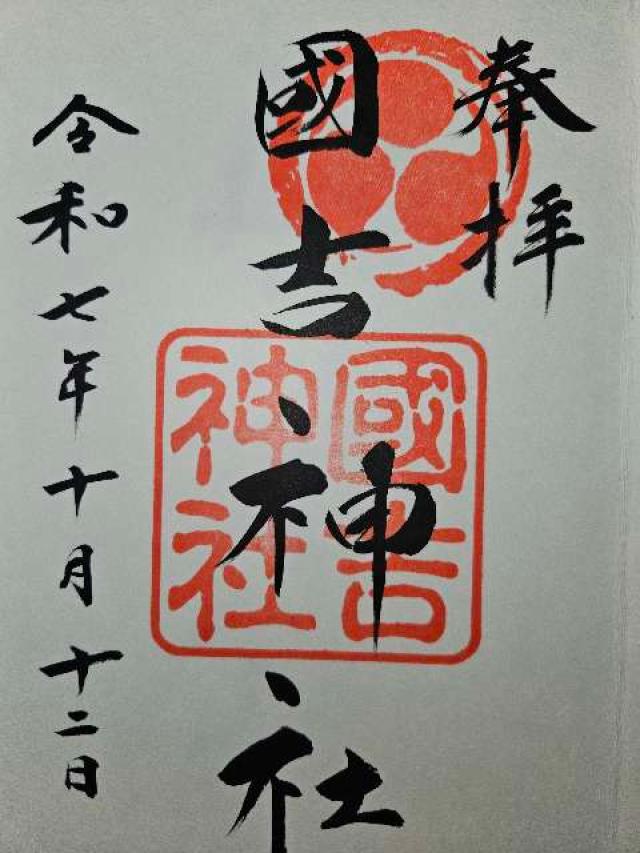 奉拝
國吉神社
國吉
神社
令和七年十月十二日